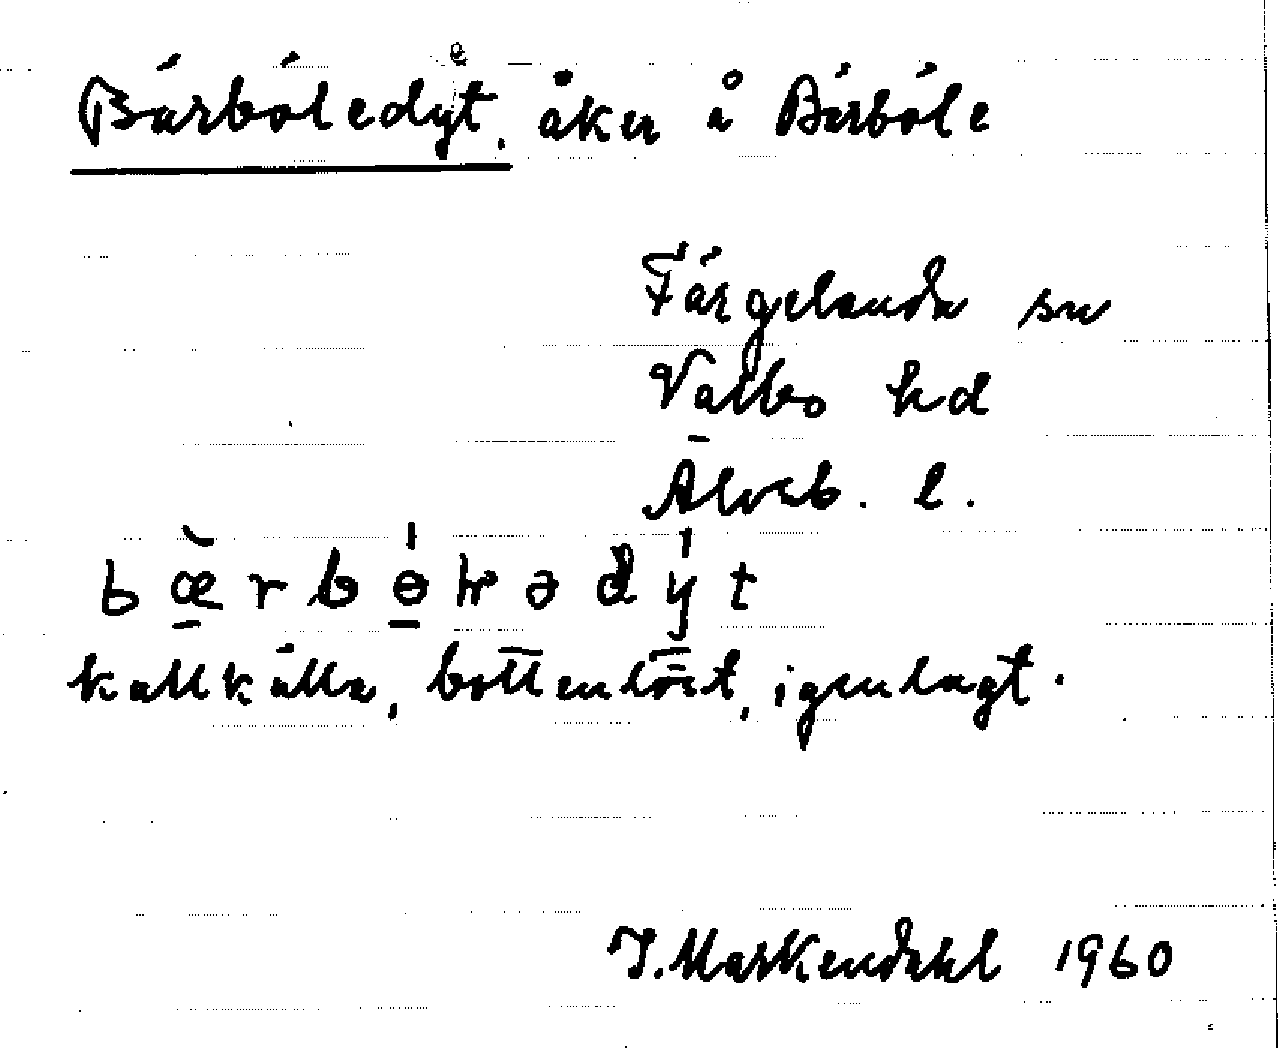 Bärböledyt, åker å Bärböle
Färgelanda sn
Valbo hd
Älvsb. l.
kallkälla, bottenlöst, igenlagt.
J. Markendahl 1960